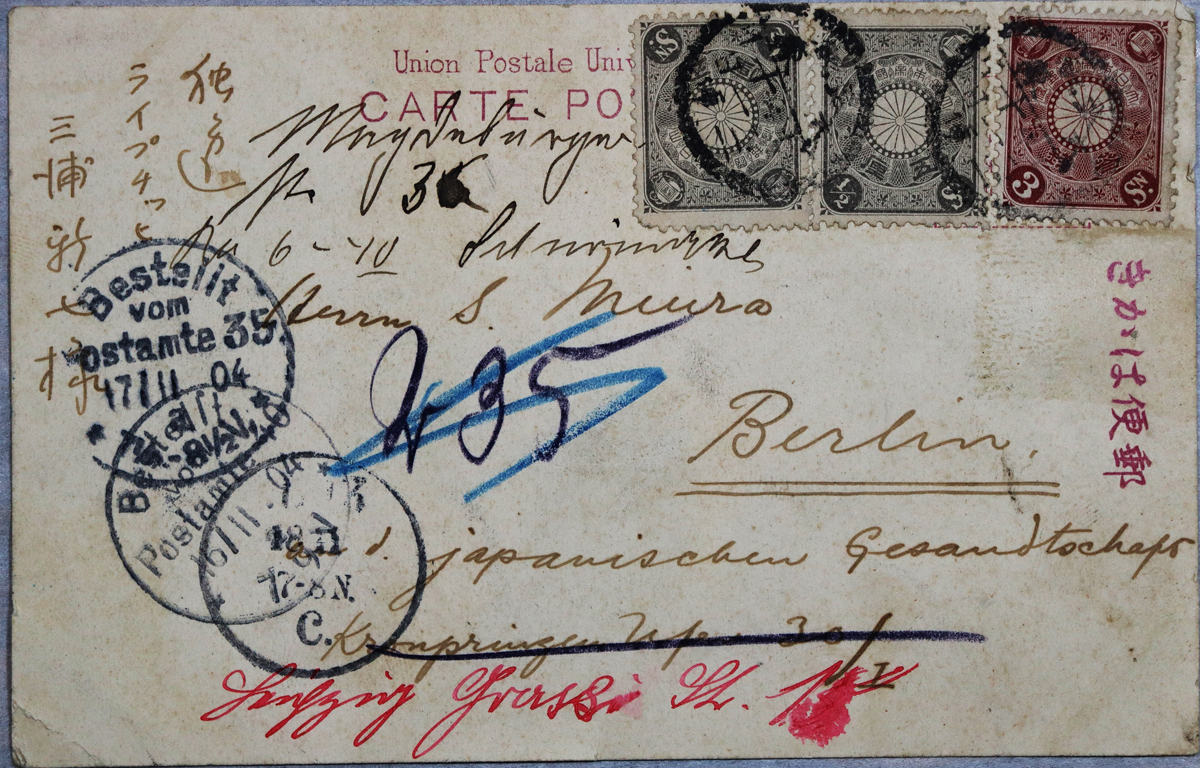 Union Postale Univ
CARTE PO
Magdeburger
str. 36
6-10
Herrn S. Miura
235
Berlin.
a. d. japanischen Gesandtschaft
Kronprinzen Ufer 30/I
Leipzig Grassi St.
独乙
ライプチッヒ
三浦新七様
きがは便郵
Bestellt
vom
Postamte 35.
17/11 04
Bestellt
vom
Postamte
16/11 04
18 11
7-8 N.
C.
3
1/2